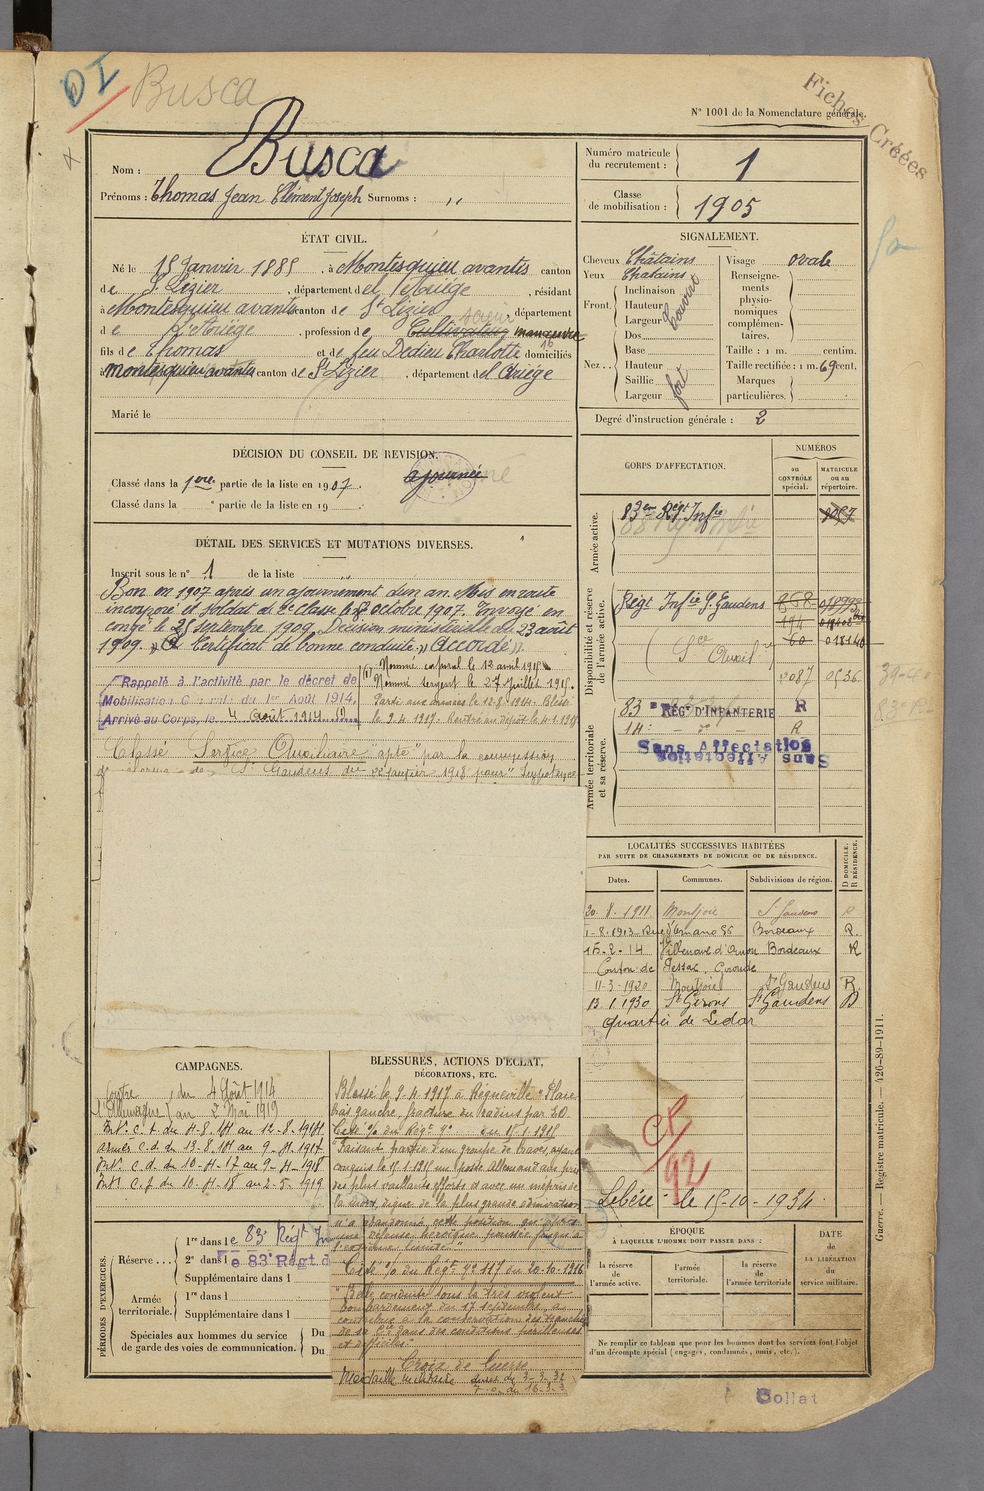 DI
Busca
Fiches Créées
N° 1001 de la Nomenclature générale.
Nom : Busca
Prénoms : Thomas Jean Clément Joseph Surnoms : ,,
Numéro matricule du recrutement : 1
Classe de mobilisation : 1905
ÉTAT CIVIL.
Né le 15 Janvier 1885, à Montesquieu avantès canton
de St Lizier, département de l'Ariège, résidant
à Montesquieu avantès canton de St Lizier, département
de L'Ariège, profession de Cultivateur manœuvre
fils de Thomas et de feu Dedieu Charlotte domiciliés
à Montesquieu avantès canton de St Lizier, département de l'Ariège
Marié le
SIGNALEMENT.
Cheveux Châtains
Yeux Châtains
Front.
Inclinaison
Hauteur
Largeur
Couvert
Nez..
Dos
Base
Hauteur
Saillie
Largeur
fort
Visage ovale
Renseignements physionomiques complémentaires.
Taille : 1 m. centim.
Taille rectifiée : 1 m. 69 cent.
Marques particulières.
Degré d'instruction générale : 2
DÉCISION DU CONSEIL DE REVISION.
Classé dans la 1ère partie de la liste en 1907.
ajourné
Classé dans la ° partie de la liste en 19 .
DÉTAIL DES SERVICES ET MUTATIONS DIVERSES.
Inscrit sous le n° 1 de la liste ,,
Bon en 1907 après un ajournement d'un an. Mis en route
incorporé et soldat de 2e classe le 8 octobre 1907. Envoyé en
congé le 25 septembre 1909. Décision ministérielle du 23 août
1909. Certificat de bonne conduite "Accordé".
Nommé caporal le 12 avril 1915
Rappelé à l'activité par le décret de
Mobilisation Générale du 1er Août 1914.
Arrivé au Corps, le 4 août 1914
Nommé sergent le 27 juillet 1915.
Parti aux armées le 12-8-1914. Blessé
le 9-4-1917. Rentré au dépôt le
Classé Service Auxiliaire "apte" par la commission
de St Gaudens du 22 janvier 1918 pour
CORPS D'AFFECTATION.
NUMÉROS
au CONTRÔLE spécial.
MATRICULE ou au répertoire.
Armée active.
83em Régt Infie
Disponibilité et réserve de l'armée active.
Régt Infie St Gaudens 868
194
60 018140
Sce Auxil
087 0536
Armée territoriale et sa réserve.
83e RÉGt D'INFANTERIE R
14 R
Sans Affectation
Sans Affectation
LOCALITÉS SUCCESSIVES HABITÉES
PAR SUITE DE CHANGEMENTS DE DOMICILE OU DE RÉSIDENCE.
Dates. Communes. Subdivisions de région. D DOMICILE. R RÉSIDENCE.
20-8-1911 Montjoie St Gaudens R
1-8-1913 Rue d'Ornano 86 Bordeaux R.
15-2-14 Villenave d'Ornon Bordeaux R
Canton de Pessac, Gironde
11-3-1920 Montjoie St Gaudens R.
13-1-1930 St Girons St Gaudens D
quartier de Ledar
CAMPAGNES.
Contre l'Allemagne
du 4 Août 1914
au 2 Mai 1919
Int. c.d. du 4-8-14 au 12-8-1914
armées c.d. du 13-8-14 au 9-4-1917
Int. c.d. du 10-4-17 au 9-4-1918
Int. c.d. du 10-4-18 au 2-5-1919
BLESSURES, ACTIONS D'ÉCLAT,
DÉCORATIONS, ETC.
Blessé le 9-4-1917 à Régneville "Plaie
bras gauche, fracture du radius par EO.
Cité % du Régt du 15-1-1915
"Faisant partie d'un groupe de braves, ayant
conquis le 15-1-1915 un poste allemand aux prix
des plus vaillants efforts et avec un mépris de
la mort, digne de la plus grande admiration
n'a abandonné cette position qu'après
une défense héroïque poussée jusqu'à
l'extrême limite."
Cité % du Régt n° 117 du 20-10-1916
bombardement du 17 septembre, a
contribué à la conservation des tranchées
de sa Cie dans des conditions périlleuses
et difficiles."
Croix de Guerre
Médaille militaire décret du 3-3-32
J.O. du 16-3-3
CP/92
Libéré le 15-10-1934.
PÉRIODES D'EXERCICES.
Réserve...
1re dans le 83e Régt Inf
2e dans le 83e Régt d
Supplémentaire dans l
Armée territoriale.
1re dans l
Supplémentaire dans l
Spéciales aux hommes du service de garde des voies de communication.
Du
Du
ÉPOQUE
À LAQUELLE L'HOMME DOIT PASSER DANS :
la réserve de l'armée active.
l'armée territoriale.
la réserve de l'armée territoriale
DATE de LA LIBÉRATION du service militaire.
Ne remplir ce tableau que pour les hommes dont les services font l'objet
d'un décompte spécial (engagés, condamnés, omis, etc.).
Guerre. — Registre matricule. — 426-89-1911.
Collat